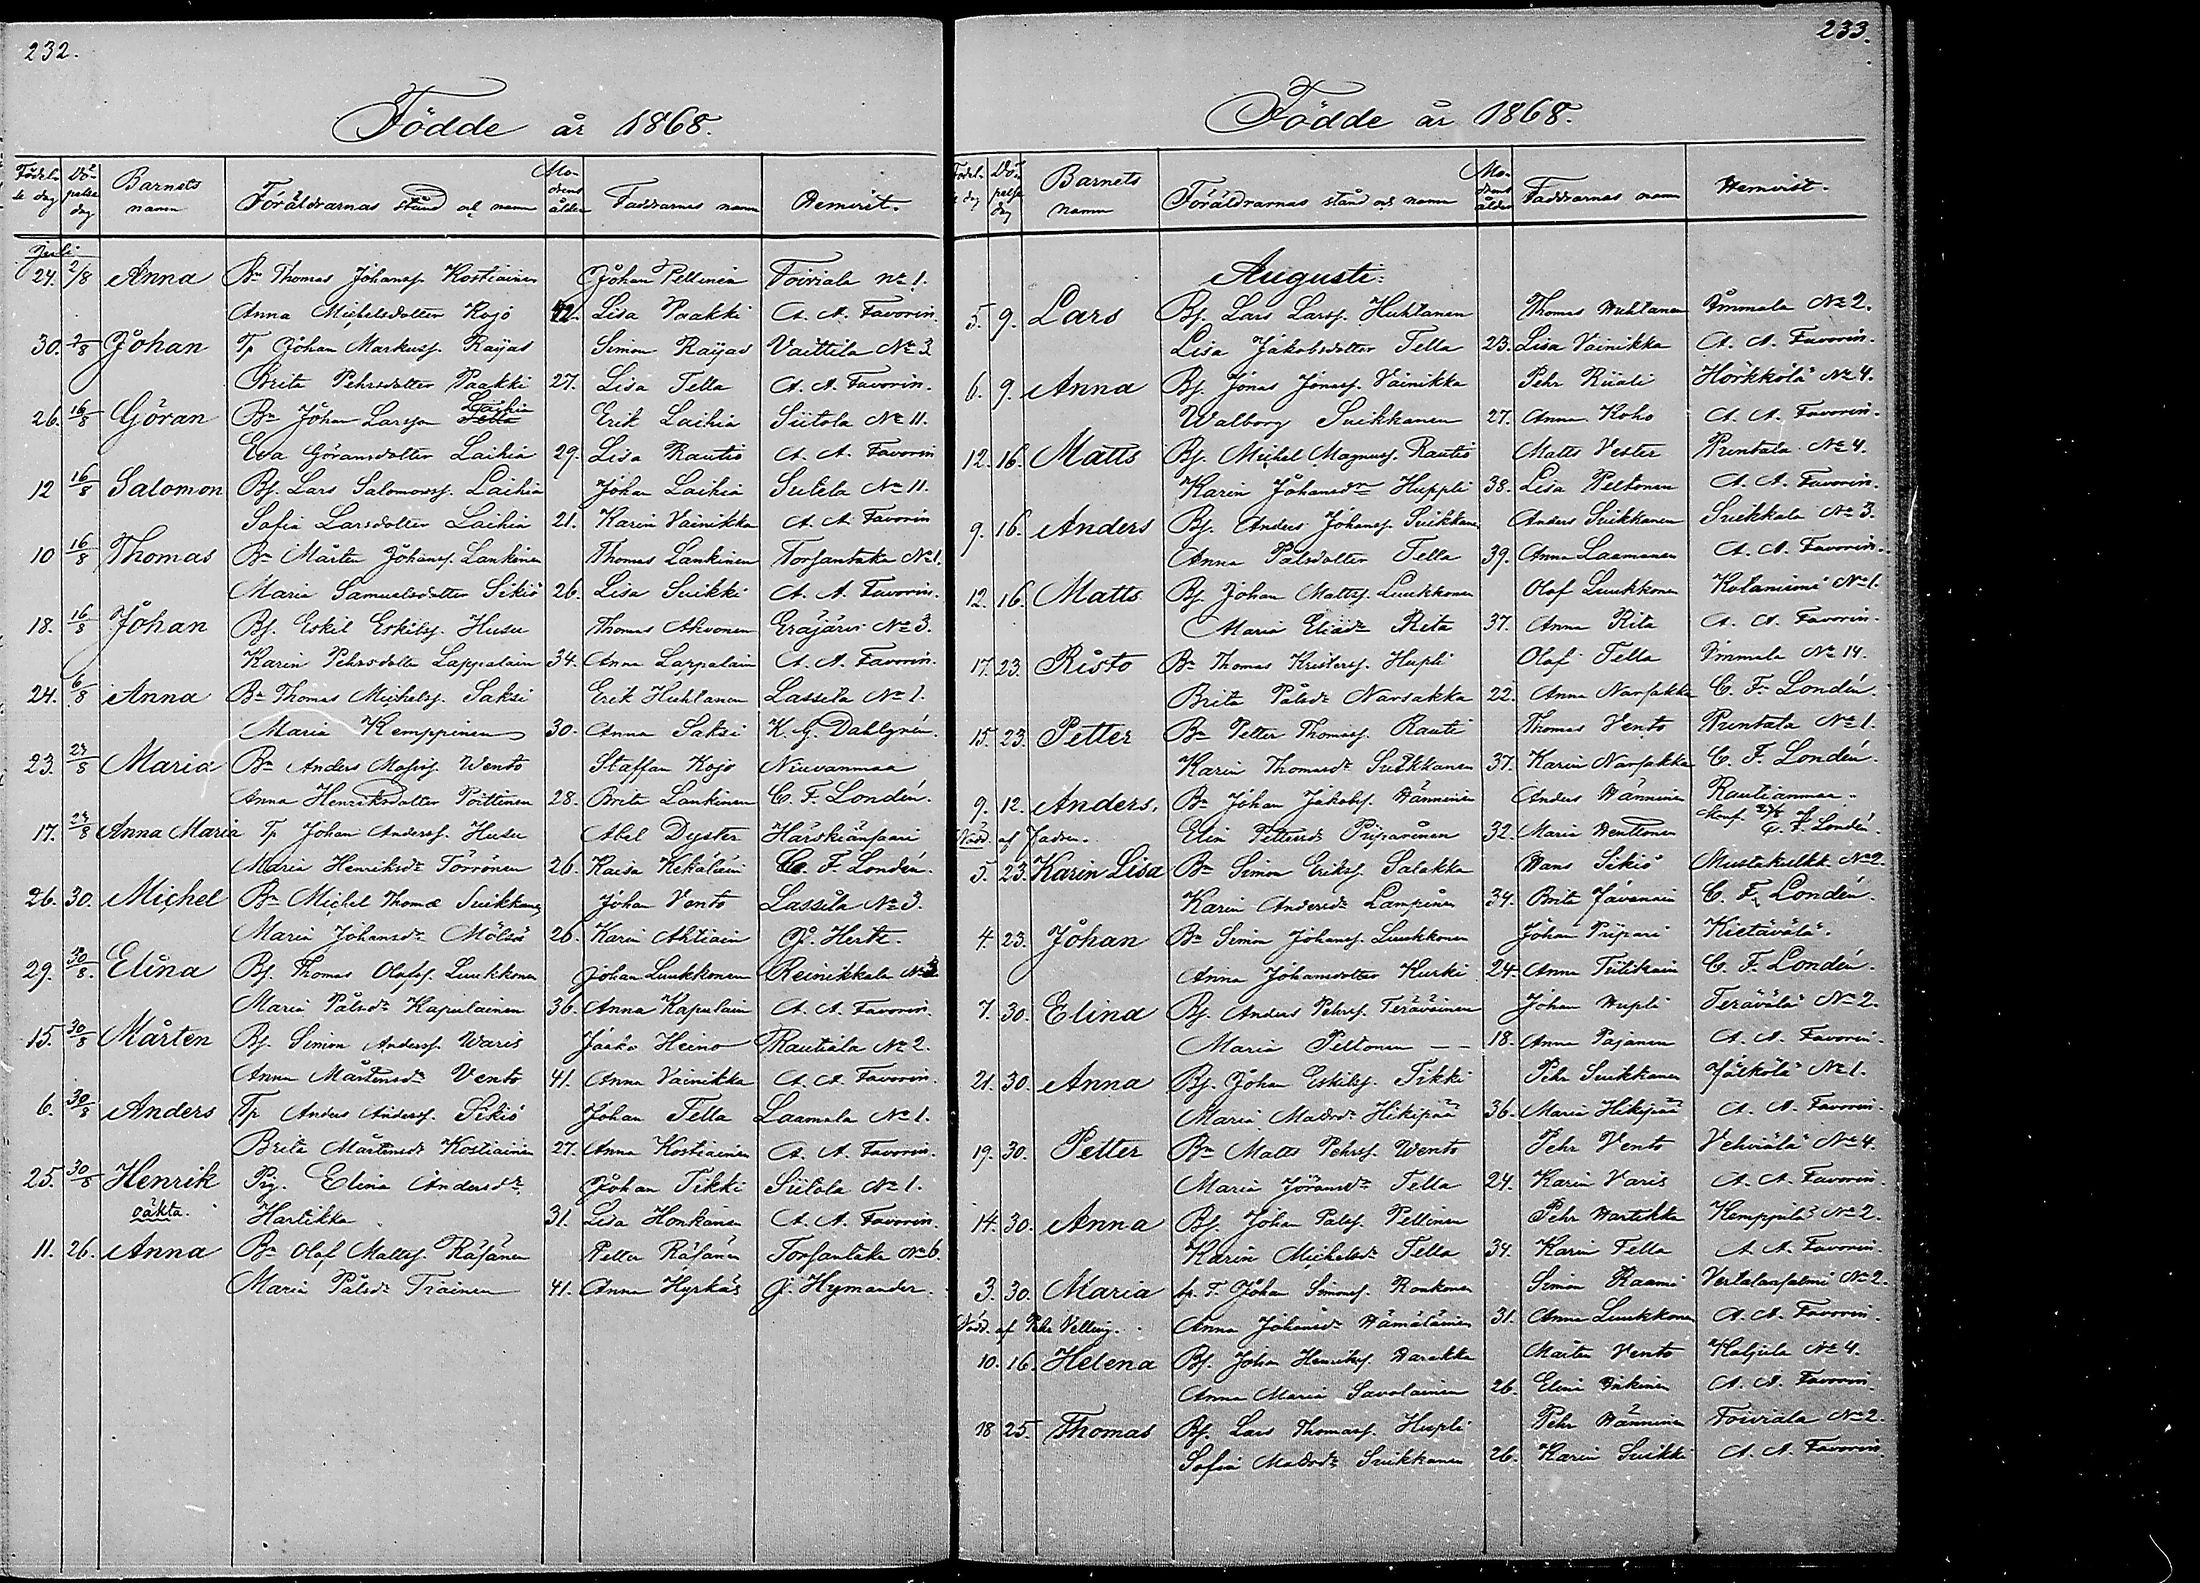 232.
Födde år 1868.
Födelsedag Döpelsedag Barnets namn Föräldrarnas stånd och namn Modrens ålder Faddrarnas namn Hemvist.
Juli
24. 2/8 Anna Bn Thomas Johansf. Kostiainen Johan Pellinen Toiviala No 1.
Anna Michelsdotter Kojo 42. Lisa Paakki A. A. Favorin.
30. 2/8 Johan Tp Johan Markusf. Raijas Simon Raijas Vaittila No 3
Brita Pehrsdotter Paakki 27. Lisa Tella A. A. Favorin.
26. 16/8 Göran Bn Johan Larsson Laihia Erik Laihia Siitola No 11.
Eva Göransdotter Laihia 29. Lisa Rautio A. A. Favorin
12 16/8 Salomon Bf. Lars Salomonsf. Laihia Johan Laihia No 11.
Sofia Larsdotter Laihia 21. Karin Vainikka A. A. Favorin
10 16/8 Thomas Bn Mårten Johansf. Lankinen Thomas Lankinen Torsantaka No 1.
Maria Samuelsdotter Sikiö 26. Lisa Suikki A. A. Favorin.
18. 16/8 Johan Bf. Eskil Eskilsf. Husu Thomas Ahvonen Eräjärvi No 3.
Karin Pehrsdotter Lappalain 34. Anna Lappalain A. A. Favorin.
24. 6/8 Anna Bn Thomas Michelsf. Saksi Erik Huhtanen Lassila No 1.
Maria Kemppinen 30. Anna Saksi K. G. Dahlgrén.
23. 23/8 Maria Bn Anders Wento Staffan Kojo Niuvanmaa
Anna Henriksdotter Poittinen 28. Brita Lankinen C. F. Londén.
17. 23/8 Anna Maria Tp Johan Andersf. Husu Abel Dyster
Maria Henriksdr Törrönen 26. Kaisa Kekäläin C. F. Londén.
26. 30. Michel Bn Michel Thomæ Suikkanen Johan Vento Lassila No 3.
Maria Johansdr Mölsä 26. Karin Ahtiain
29. 30/8. Elina Bf. Thomas Olofsf. Luukkonen Johan Luukkonen Reinikkala
Maria Pålsdr Kapulainen 36. Anna Kapulain A. A. Favorin.
15. 30/8 Mårten Bf. Simon Andersf. Waris Jaako Heino Rautiala No 2.
Anna Mårtensdr Vento 41. Anna Vainikka A. A. Favorin.
6. 30/8 Anders Tp Anders Andersf. Sikiö Johan Tella Laamala No 1.
Brita Mårtensdr Kostiainen 27. Anna Kostiainen A. A. Favorin.
25. 30/8 Henrik Pig. Elina Andersdr Johan Tikki Siitola No 1.
oäkta. Hartikka 31. Lisa Honkanen A. A. Favorin.
11. 26. Anna Bn Olof Mattsf. Räsänen Petter Räsänen Torsantaka No 6.
Maria Pålsdr 41. Anna Hyrkäs J. Hymander.
233.
Födde år 1868.
Födelsedag Döpelsedag Barnets namn Föräldrarnas stånd och namn Modrens ålder Faddrarnas namn Hemvist.
Augusti.
5. 9. Lars Bf. Lars Larsf. Huhtanen Thomas Huhtanen Immala No 2.
Lisa Jakobsdotter Tella 23. Lisa Vainikka A. A. Favorin.
6. 9. Anna Bf. Jonas Jonasf. Vainikka Pehr Riiali Hörkkölä No 4.
Walborg Suikkanen 27. Anna Koho A. A. Favorin.
12. 16. Matts Bf. Michel Magnusf. Rautio Matts Vester Pruntala No 4.
Karin Johansdr Huppli 38. Lisa Peltonen A. A. Favorin.
9. 16. Anders Bf. Anders Johansf. Suikkanen Anders Suikkanen Suikkala No 3.
Anna Pålsdotter Tella 39. Anna Laamanen A. A. Favorin.
12. 16. Matts Bf. Johan Mattsf. Luukkonen Olof Luukkonen Kotaniemi No 1.
Maria Eliædr Rita 37. Anna Rita A. A. Favorin.
17. 23. Risto Bn Thomas Kristersf. Hupli Olof Tella Immala No 14.
Brita Pålsdr Narsakka 22. Anna Narsakka C. F. Londén.
15. 23. Petter Bn Petter Thomasf. Rauti Thomas Vento Pruntala No 1.
Karin Thomasdr Suikkanen 37. Karin Narsakka C. F. Londén.
9. 12. Anders. Bn Johan Jakobsf. Hänninen Anders Hänninen Rautianmaa.
Nödd. af Fadren. Elin Pettersdr Piiparinen 32. Maria Henttonen Conf. 23/8 C. F. Londén.
5. 23. Karin Lisa Bn Simon Eriksf. Salakka Hans Sikiö No 2
Karin Andersdr Lampinen 34. Brita Jäväinen C. F. Londén.
4. 23. Johan Bn Simon Johansf. Luukkonen Johan Piipari Kietävälä.
Anna Johansdotter Kurki 24. Anna Tiilikain C. F. Londén.
7. 30. Elina Bf. Anders Pehrsf. Teräväinen Johan Hupli Terävälä No 2.
Maria Peltonen — — 18. Anna Pajanen A. A. Favorin.
21. 30. Anna Bf. Johan Eskilsf. Tikki Pehr Suikkanen Jälkölä No 1.
Maria Matsdr Hikipää 36. Maria Hikipää A. A. Favorin.
19. 30. Petter Bn Matts Pehrsf. Wento Pehr Vento Vehviälä No 4.
Maria Jöransdr Tella 24. Karin Varis A. A. Favorin.
14. 30. Anna Bf. Johan Palsf. Pellinen Pehr Hartikka Kemppilä No 2.
Karin Michelsdr Tella 34. Karin Tella A. A. Favorin.
3. 30. Maria Johan Simonsf. Ronkonen Simon Raami No 2.
Nödd. af Pehr Velling. Anna Johansdr Hämäläinen 31. Anna Luukkonen A. A. Favorin.
10. 16. Helena Bf. Johan Henriksf. Harakka Mårten Vento Haljula No 4.
Anna Maria Savolainen 26. Elina A. A. Favorin.
18 25. Thomas Bf. Lars Thomasf. Hupli Pehr Hänninen Toiviala No 2.
Sofia Matsdr Suikkanen 26. Karin Suikki A. A. Favorin.